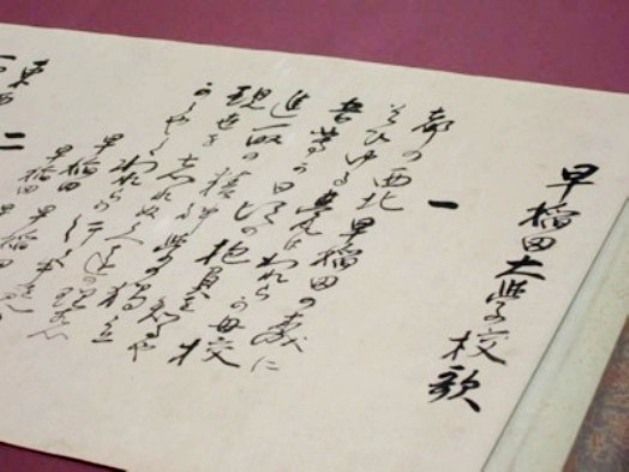 早稲田大學校歌
一
都の西北 早稲田の森に
そびゆる甍はわれらが母校
吾等が日頃の抱負を知るや
進取の精神 學の獨立
現世を忘れぬ久遠の理想
かゞやくわれらの行手を見よや
早稲田 早稲田
早稲田 早稲田
二
東西